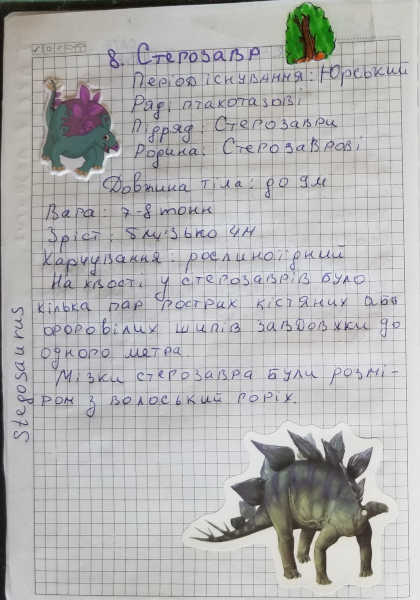 8. Стегозавр
Період існування: Юрський
Ряд: птахотазові
Підряд: Стегозаври
Родина: Стегозаврові
Довжина тіла: до 9м
Вага: 7-8 тонн
Зріст: близько 4м
Харчування: рослиноїдний
На хвості у стегозаврів було
кілька пар гострих кістяних або
роговілих шипів завдовжки до
одного метра.
Мізки стегозавра були розмі-
ром з волоський горіх.
Stegosaurus